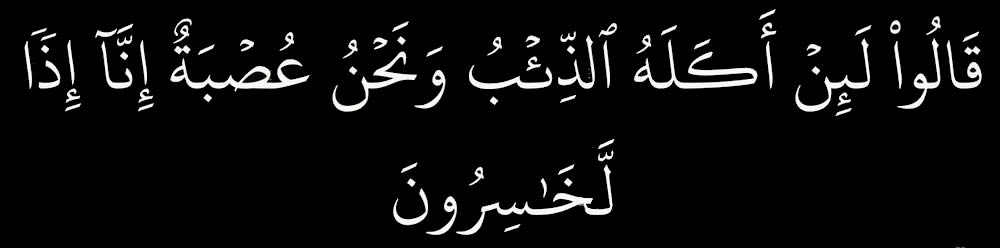 قَالُوا۟ لَئِنْ أَكَلَهُ ٱلذِّئْبُ وَنَحْنُ عُصْبَةٌ إِنَّآ إِذًا
لَّخَـٰسِرُونَ